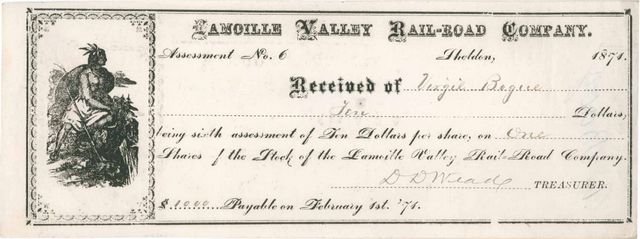 LAMOILLE VALLEY RAIL-ROAD COMPANY.
Assessment No. 6 Sheldon, 1871.
Received of Virgil Bogue
Ten Dollars,
being sixth assessment of Ten Dollars per share, on One
Shares of the Stock of the Lamoille Valley Rail-Road Company.
D D Wead TREASURER.
$ 10.00 Payable on February 1st. '71.